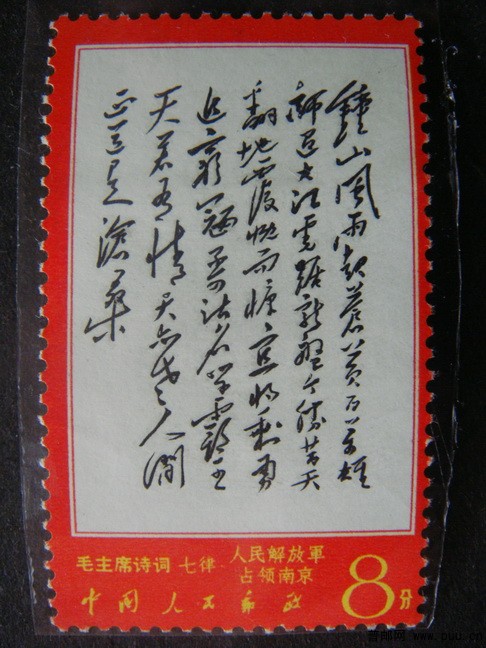 鐘山風雨起蒼黃百万雄
師過大江虎踞龍盤今勝昔天
翻地覆慨而慷宜將剩勇
追窮寇不可沽名學霸王
天若有情天亦老人間
正道是滄桑
毛主席诗词 七律·人民解放軍
占领南京
8分
中国人民邮政
普邮网 www.puu.cn